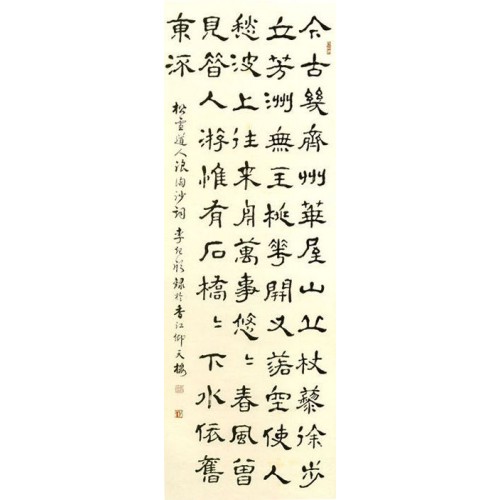 今古幾齊州華屋山丘杖藜徐步
立芳洲無主桃花開又落空使人
愁波上往來舟萬事悠〻春風曾
見昔人游惟有石橋〻下水依舊
東流
松雪道人浪淘沙詞 李 錄於香江仰天樓